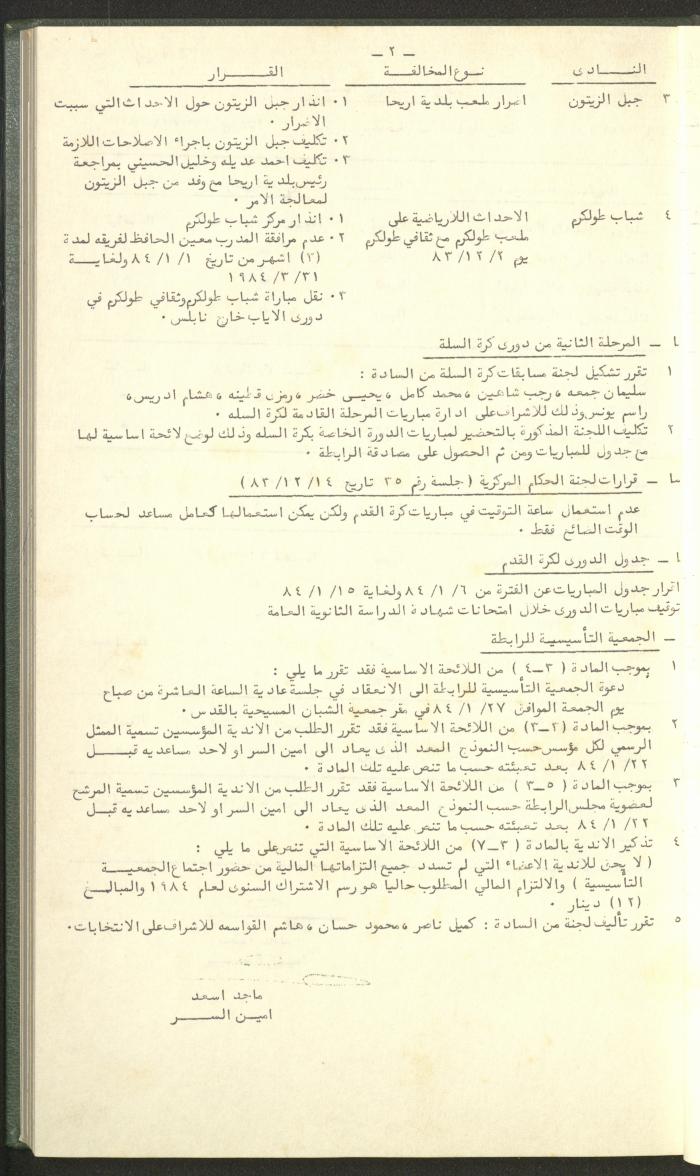 - ٢ -
النـــادى    نــوع المخالفــة    القـــــرار
٣ جبل الزيتون    اضرار ملعب بلدية اريحا    ٠١ انذار جبل الزيتون حول الاحداث التي سببت
الاضرار ٠
٠٢ تكليف جبل الزيتون باجراء الاصلاحات اللازمة
٠٣ تكليف احمد عديله وخليل الحسيني بمراجعة
رئيس بلدية اريحا مع وفد من جبل الزيتون
لمعالجة الامر ٠
٤ شباب طولكرم    الاحداث اللارياضية على    ٠١ انذار مركز شباب طولكرم
ملعب طولكرم مع ثقافي طولكرم    ٠٢ عدم مرافقة المدرب معين الحافظ لفريقه لمدة
يوم ٢/ ١٢/ ٨٣    (٣) اشهر من تاريخ ١/ ١/ ٨٤ ولغايـــة
٣١/ ٣/ ١٩٨٤
٠٣ نقل مباراة شباب طولكرم وثقافي طولكرم في
دورى الاياب خان نابلس ٠
ـ المرحلة الثانية من دورى كرة السلة
١ تقرر تشكيل لجنة مسابقات كرة السلة من السادة :
سليمان جمعه ، رجب شاهين ، محمد كامل ، يحيـى خضر ، رمزى قطينه ، هشام ادريس ،
راسم يونس وذلك للاشراف على ادارة مباريات المرحلة القادمة لكرة السله ٠
٢ تكليف اللجنة المذكورة بالتحضير لمباريات الدورة الخاصة بكرة السله وذلك لوضع لائحة اساسية لها
مع جدول للمباريات ومن ثم الحصول على مصادقة الرابطة ٠
ـ قرارات لجنة الحكام المركزية ( جلسة رقم ٣٥ تاريخ ١٤/ ١٢/ ٨٣ )
عدم استعمال ساعة التوقيت في مباريات كرة القدم ولكن يمكن استعمالها كعامل مساعد لحساب
الوقت الضائع فقط ٠
ـ جدول الدورى لكرة القدم
اقرار جدول المباريات عن الفترة من ٦/ ١/ ٨٤ ولغاية ١٥/ ١/ ٨٤
توقيف مباريات الدورى خلال امتحانات شهادة الدراسة الثانوية العامة
ـ الجمعية التأسيسية للرابطة
١ بموجب المادة ( ٣ـ٤ ) من اللائحة الاساسية فقد تقرر ما يلي :
دعوة الجمعية التأسيسية للرابطة الى الانعقاد في جلسة عادية الساعة العاشرة من صباح
يوم الجمعة الموافق ٢٧/ ١/ ٨٤ في مقر جمعية الشبان المسيحية بالقدس ٠
٢ بموجب المادة (٣ـ٣) من اللائحة الاساسية فقد تقرر الطلب من الاندية المؤسسين تسمية الممثل
الرسمي لكل مؤسس حسب النموذج المعد الذى يعاد الى امين السر او لاحد مساعديه قبــل
٢٢/ ١/ ٨٤ بعد تعبئته حسب ما تنص عليه تلك المادة ٠
٣ بموجب المادة ( ٥ـ٣ ) من اللائحة الاساسية فقد تقرر الطلب من الاندية المؤسسين تسمية المرشح
لعضوية مجلس الرابطة حسب النموذج المعد الذى يعاد الى امين السر او لاحد مساعديه قبل
٢٢/ ١/ ٨٤ بعد تعبئته حسب ما تنص عليه تلك المادة ٠
٤ تذكير الاندية بالمادة ( ٣ـ٧) من اللائحة الاساسية التي تنص على ما يلي :
( لا يحق للاندية الاعضاء التي لم تسدد جميع التزاماتها المالية من حضور اجتماع الجمعيـــة
التأسيسية ) والالتزام المالي المطلوب حاليا هو رسم الاشتراك السنوى لعام ١٩٨٤ والمبالــغ
(١٢) دينار ٠
٥ تقرر تأليف لجنة من السادة : كميل ناصر ، محمود حسان ، هاشم القواسمه للاشراف على الانتخابات ٠
ماجد اسعد
امين الســـر